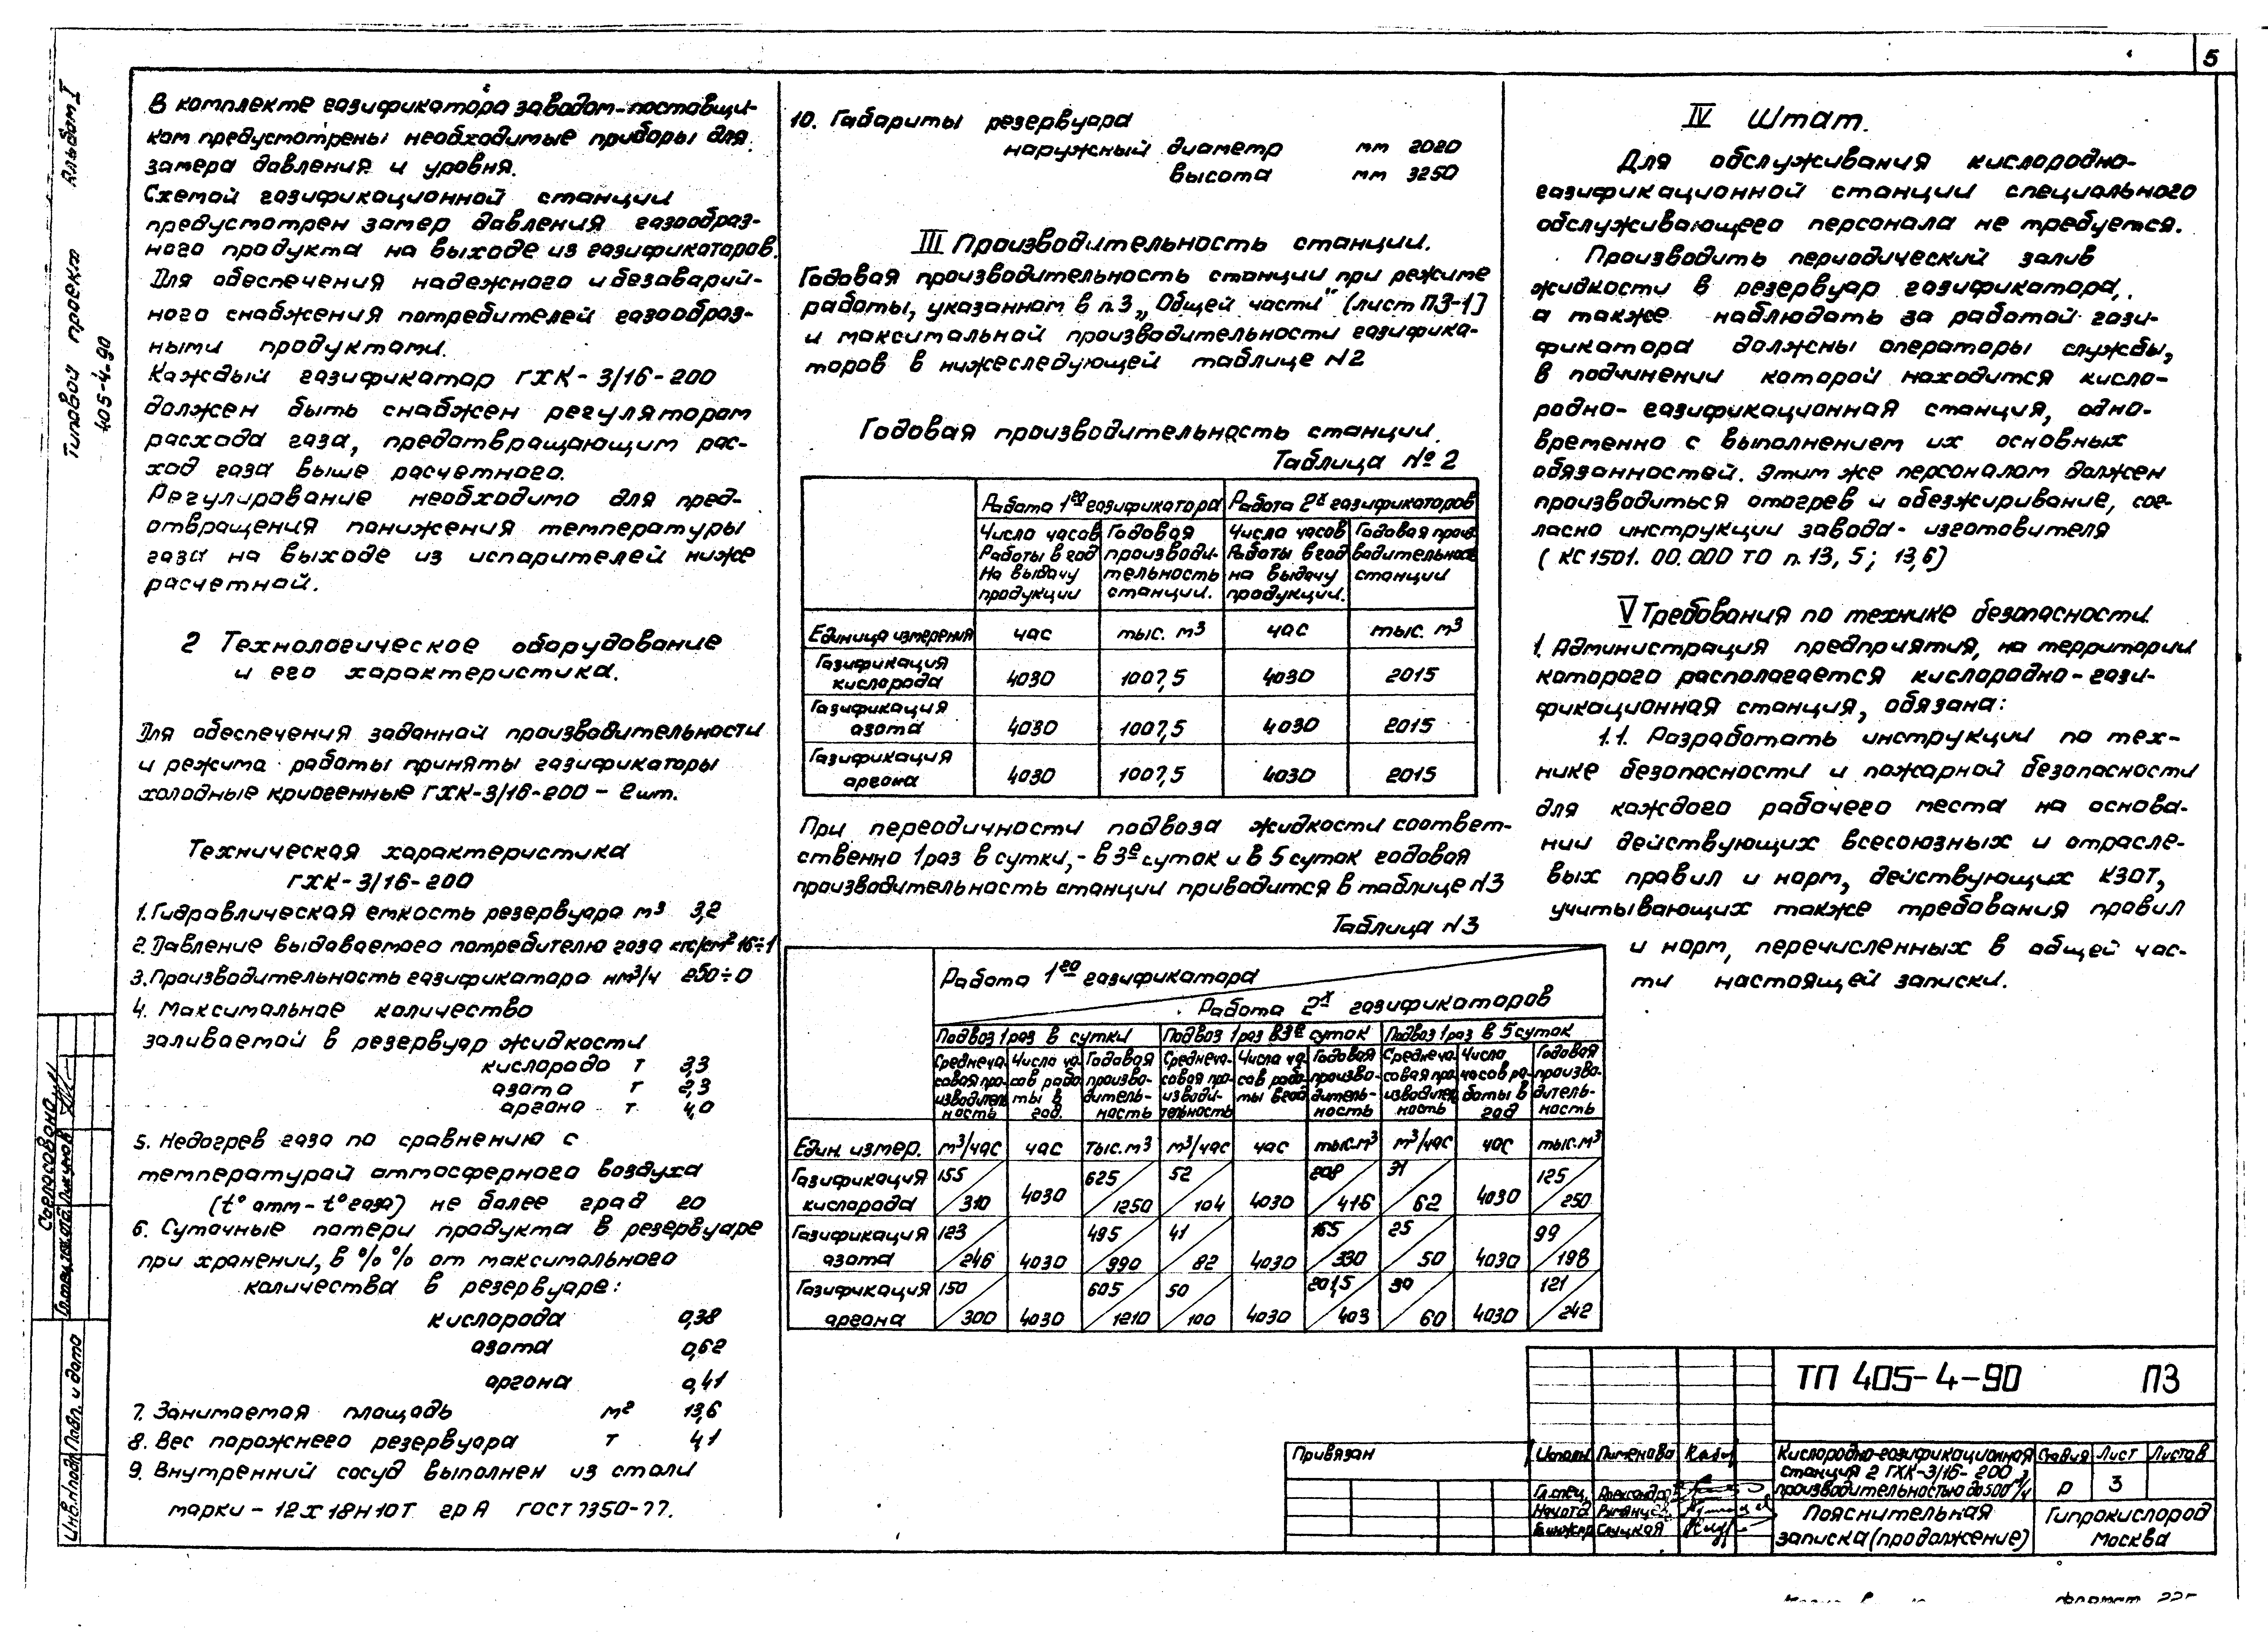 5
Альбом I
Типовой проект
405-4-90
В комплекте газификатора заводом-поставщи-
ком предусмотрены необходимые приборы для
замера давления и уровня.
Схемой газификационной станции
предусмотрен замер давления газообраз-
ного продукта на выходе из газификаторов.
Для обеспечения надежного и безаварий-
ного снабжения потребителей газообраз-
ными продуктами.
Каждый газификатор ГХК-3/16-200
должен быть снабжен регулятором
расхода газа, предотвращающим рас-
ход газа выше расчетного.
Регулирование необходимо для пред-
отвращения понижения температуры
газа на выходе из испарителей ниже
расчетной.
2 Технологическое оборудование
и его характеристика.
Для обеспечения заданной производительности
и режима работы приняты газификаторы
холодные криогенные ГХК-3/16-200 - 2шт.
Техническая характеристика
ГХК-3/16-200
1. Гидравлическая емкость резервуара м³ 3,2
2. Давление выдаваемого потребителю газа кгс/см² 16÷1
3. Производительность газификатора нм³/ч 250÷0
4. Максимальное количество
заливаемой в резервуар жидкости
кислорода т 3,3
азота т 2,3
аргона т 4,0
5. Недогрев газа по сравнению с
температурой атмосферного воздуха
(t° атм - t° газа) не более град 20
6. Суточные потери продукта в резервуаре
при хранении, в %% от максимального
количества в резервуаре:
кислорода 0,38
азота 0,62
аргона 0,41
7. Занимаемая площадь м² 13,6
8. Вес порожнего резервуара т 4,1
9. Внутренний сосуд выполнен из стали
марки - 12Х18Н10Т гр А ГОСТ 7350-77.
10. Габариты резервуара
наружный диаметр мм 2020
высота мм 3250
III Производительность станции.
Годовая производительность станции при режиме
работы, указанном в п.3 „Общей части" (лист ПЗ-1)
и максимальной производительности газифика-
торов в нижеследующей таблице N2
Годовая производительность станции.
Таблица №2
Работа 1го газификатора Работа 2х газификаторов
Число часов Годовая Число часов Годовая произ
Работы в год производи- Работы в год водительнос
На выдачу тельность на выдачу станции
продукции станции. продукции.
Единица измерения час тыс. м³ час тыс. м³
Газификация
кислорода 4030 1007,5 4030 2015
Газификация
азота 4030 1007,5 4030 2015
Газификация
аргона 4030 1007,5 4030 2015
При переодичности подвоза жидкости соответ-
ственно 1 раз в сутки, - в 3е суток и в 5 суток годовая
производительность станции приводится в таблице N3
Таблица N3
Работа 1го газификатора
Работа 2х газификаторов
Подвоз 1раз в сутки Подвоз 1раз в 3е суток Подвоз 1раз в 5 суток
Среднеча- Число ча- Годовая Среднеча- Число ча- Годовая Среднеча- Число Годовая
совая про- сов рабо произво- совая про- сов рабо- произво- совая про- часов ра- произво-
изводитель ты в дитель- изводи- ты вгод дитель- изводител боты в дитель-
ность год. ность тельность ность ность год ность
Един. измер. м³/час час тыс. м³ м³/час час тыс.м³ м³/час час тыс.м³
Газификация 155 625 52 208 31 125
кислорода 310 4030 1250 104 4030 416 62 4030 250
Газификация 123 495 41 165 25 99
азота 246 4030 990 82 4030 330 50 4030 198
Газификация 150 605 50 201,5 30 121
аргона 300 4030 1210 100 4030 403 60 4030 242
IV Штат.
Для обслуживания кислородно-
газификационной станции специального
обслуживающего персонала не требуется.
Производить периодический залив
жидкости в резервуар газификатора,
а также наблюдать за работой гази-
фикатора должны операторы службы,
в подчинении которой находится кисло-
родно-газификационная станция, одно-
временно с выполнением их основных
обязанностей. Этим же персоналом должен
производиться отогрев и обезжиривание, сог-
ласно инструкции завода-изготовителя
(КС1501.00.000 ТО п.13,5; 13,6)
V Требования по технике безопасности
1. Администрация предприятия, на территории
которого располагается кислородно-гази-
фикационная станция, обязана:
1.1. Разработать инструкции по тех-
нике безопасности и пожарной безопасности
для каждого рабочего места на основа-
нии действующих всесоюзных и отрасле-
вых правил и норм, действующих КЗОТ,
учитывающих также требования правил
и норм, перечисленных в общей час-
ти настоящей записки.
Согласовано
Инв.Nподл Подп. и дата
Привязан
ТП 405-4-90 ПЗ
Исполн Пименова
Гл.спец. Александр
Нач отд
Слуцкая
Кислородно-газификационная
станция 2 ГХК-3/16-200
производительностью до 500 м³/ч
Стадия Лист Листов
Р 3
Пояснительная
записка (продолжение)
Гипрокислород
Москва
формат 22г